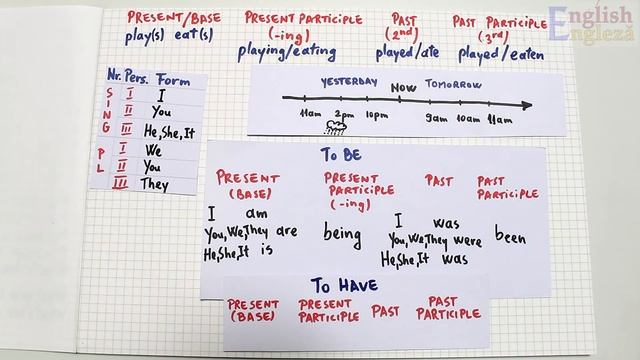 PRESENT/BASE PRESENT PARTICIPLE PAST PAST PARTICIPLE
(-ing) (2nd) (3rd)
play(s) eat(s) playing/eating played/ate played/eaten
English
Engleză
Nr. Pers. Form
SING I I
II You
III He, She, It
PL I We
II You
III They
YESTERDAY NOW TOMORROW
11am 2pm 10pm 9am 10am 11am
TO BE
PRESENT PRESENT PAST PAST
(BASE) PARTICIPLE PARTICIPLE
(-ing)
I am I was
You, We, They are being You, We, They were been
He, She, It is He, She, It was
TO HAVE
PRESENT PRESENT PAST PAST
(BASE) PARTICIPLE PARTICIPLE